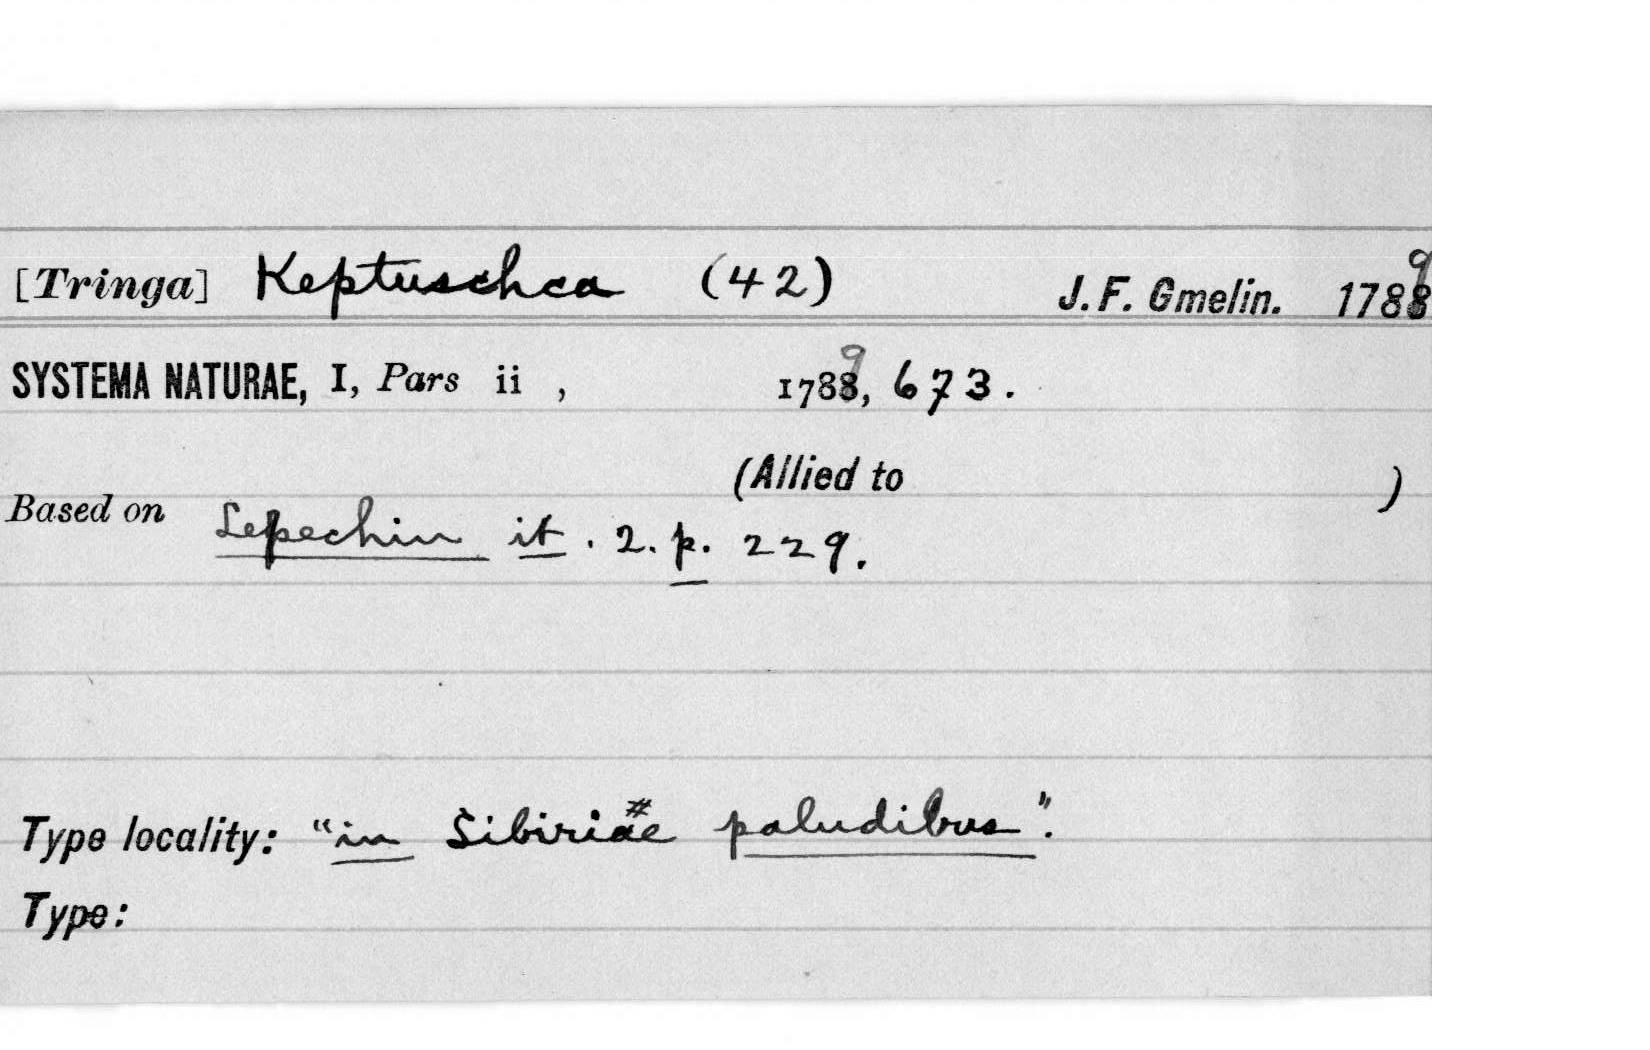 [Tringa] Keptuschca (42) J. F. Gmelin. 1789
SYSTEMA NATURAE, I, Pars ii , 1789, 673.
(Allied to )
Based on Lepechin it. 2. p. 229.
Type locality: "in Sibiriae # paludibus".
Type: